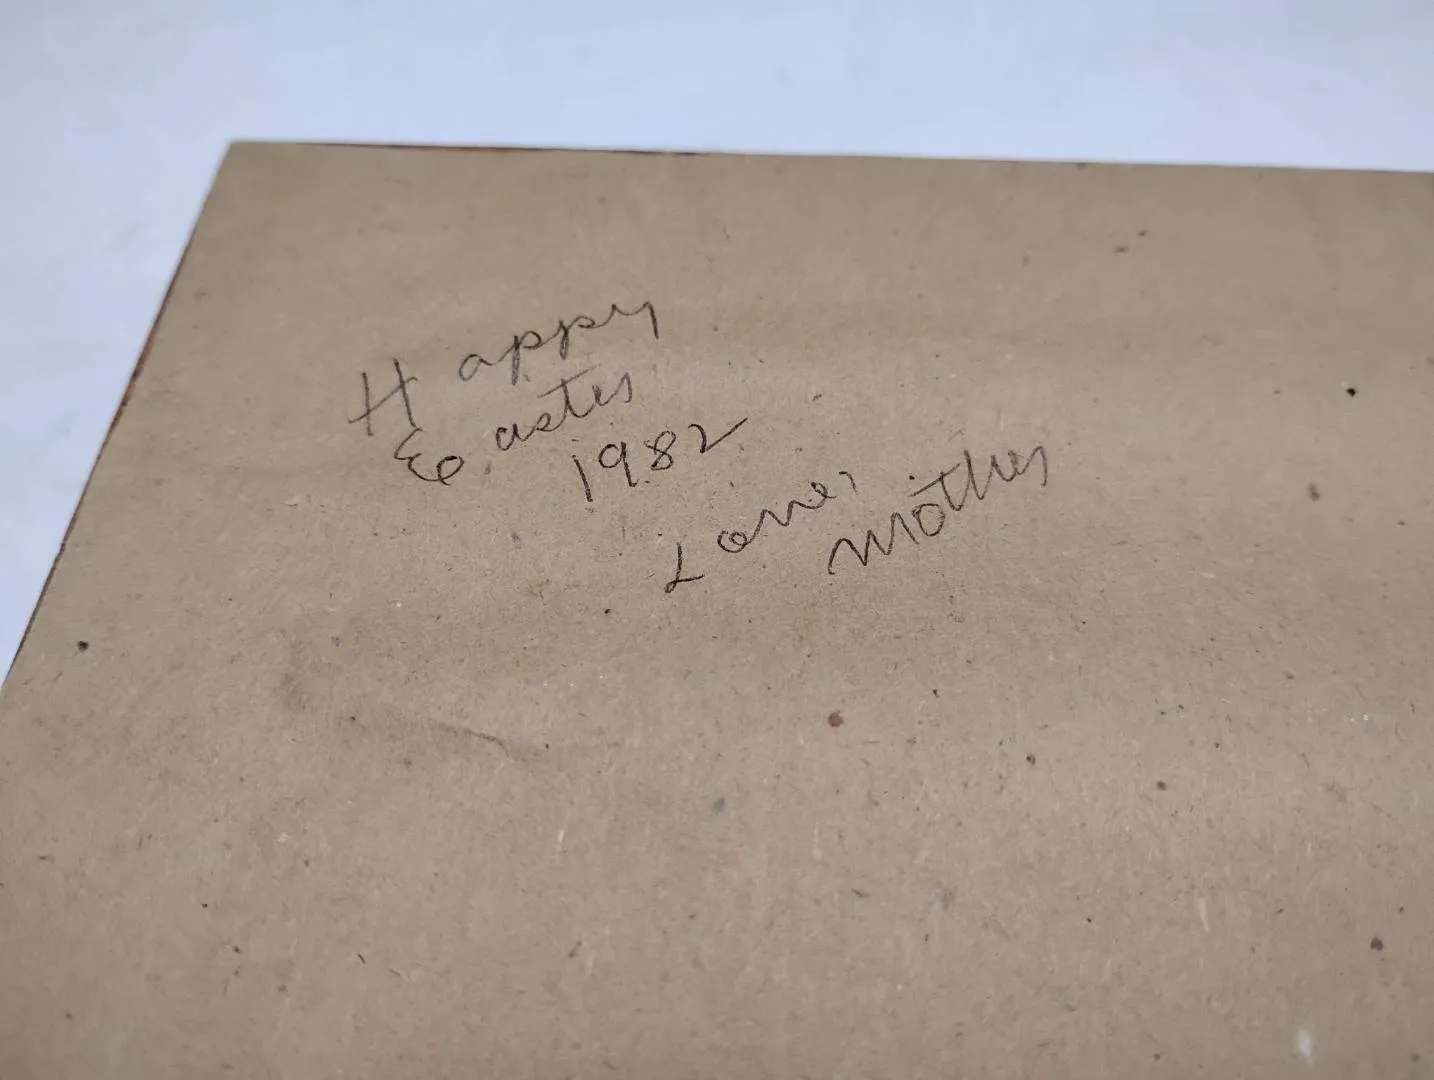 Happy
Easter
1982
Love,
Mother